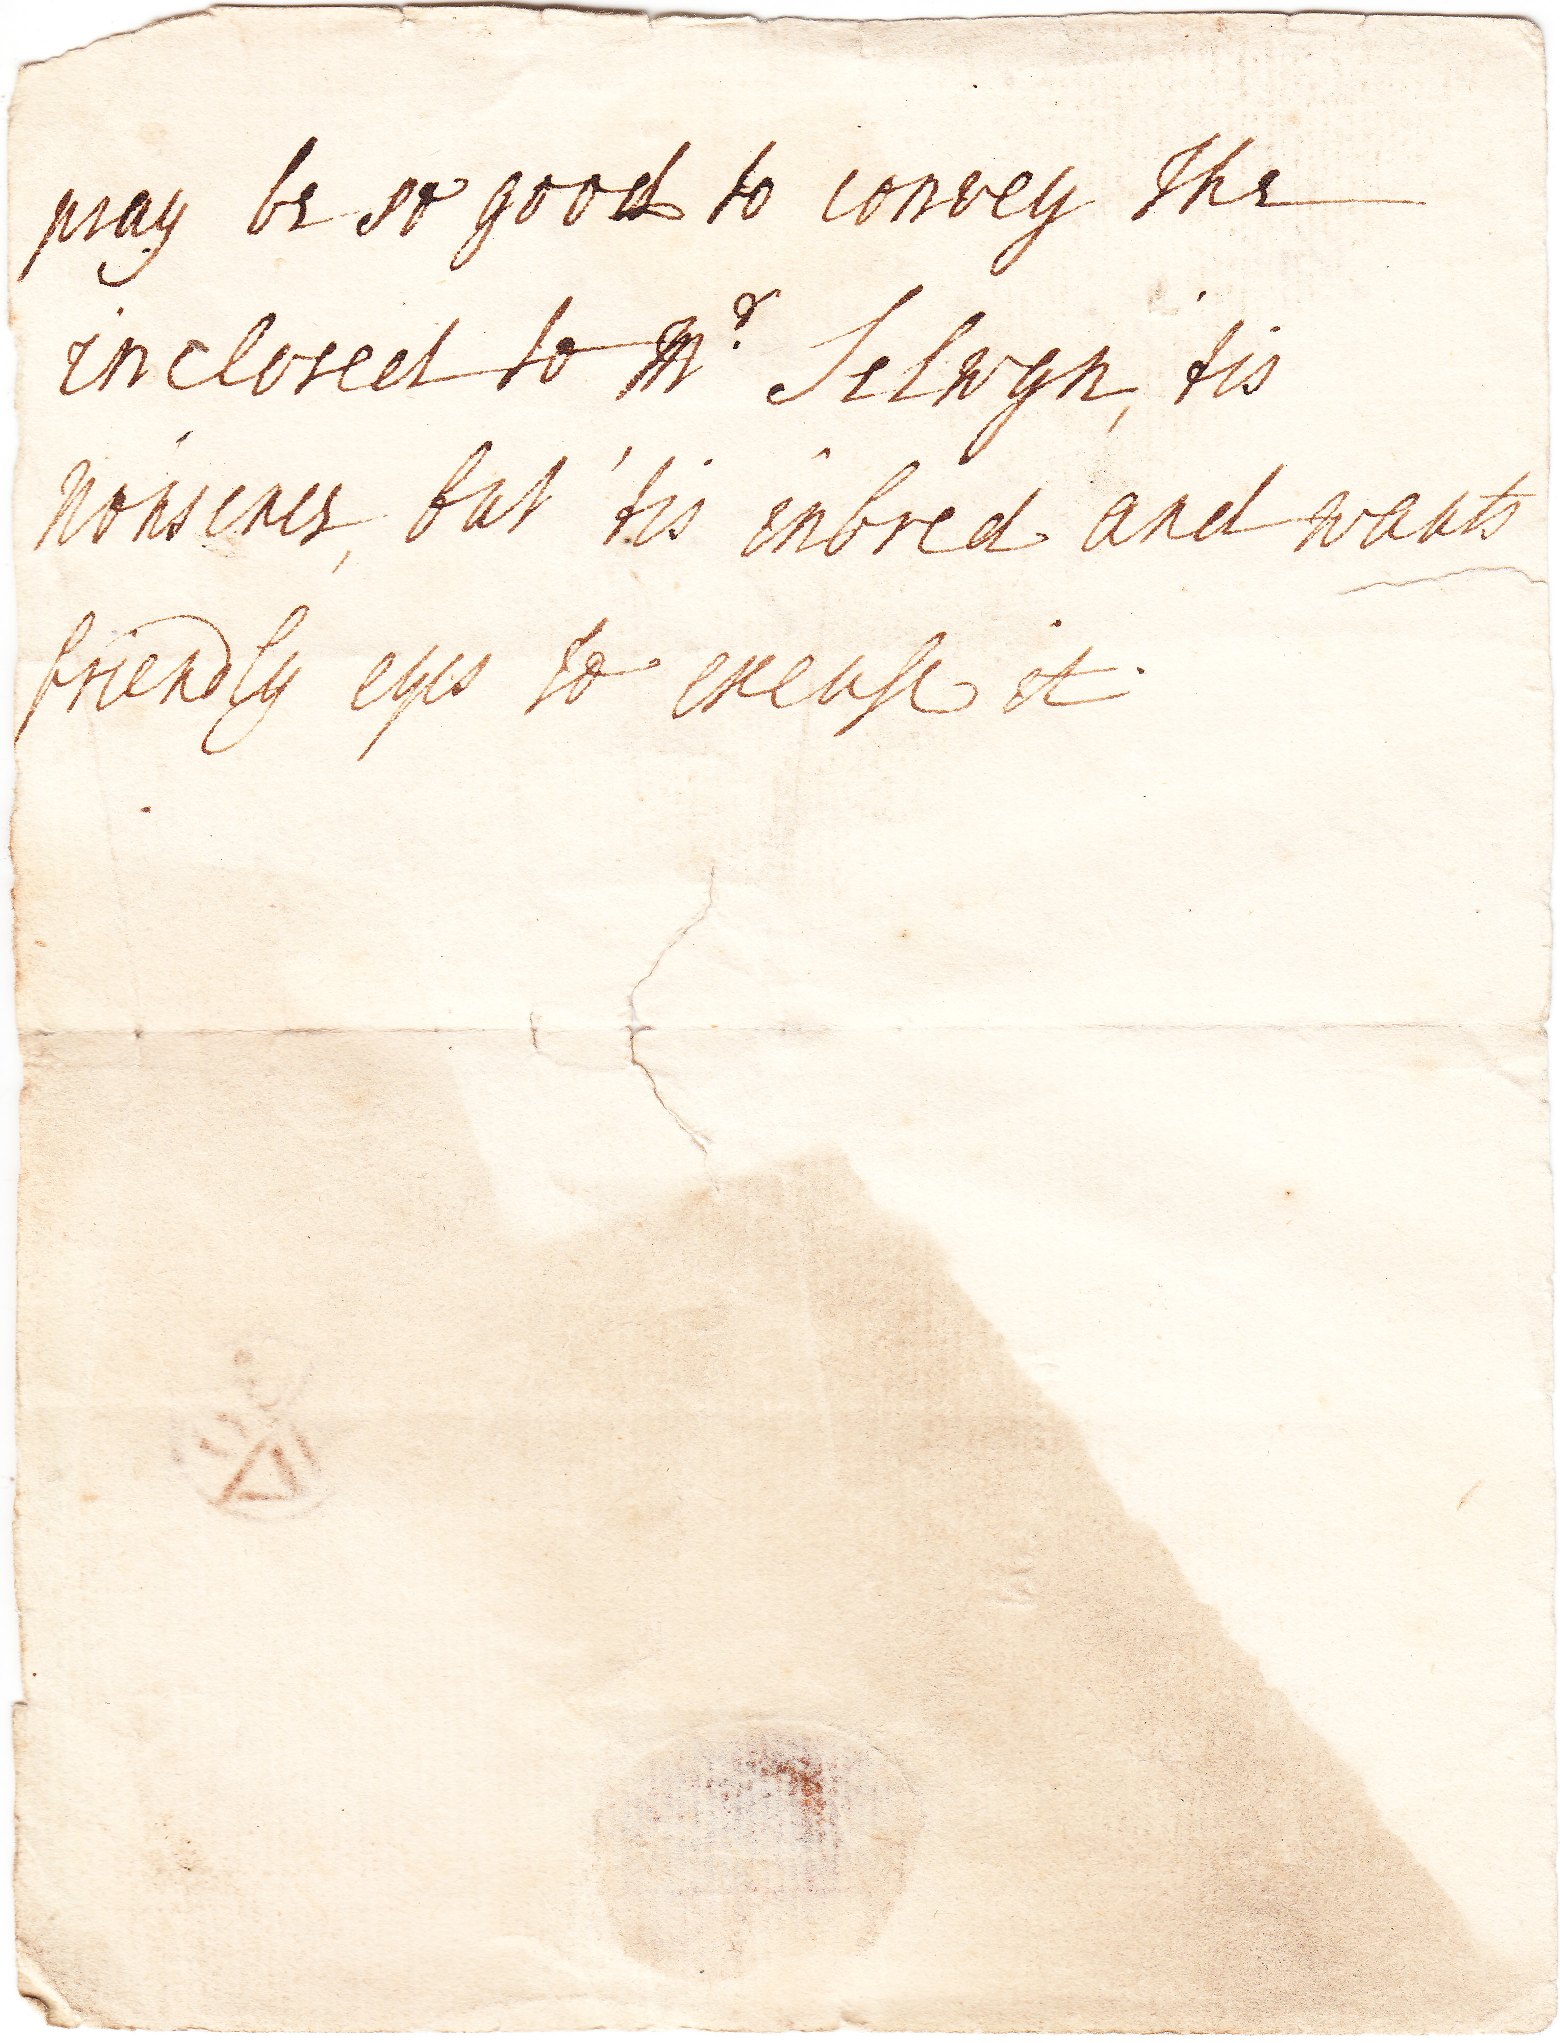 pray be so good to convey the
inclosed to Mr. Selwyn, 'tis
nonsence, but 'tis inbred and wants
friendly eyes to excuse it.